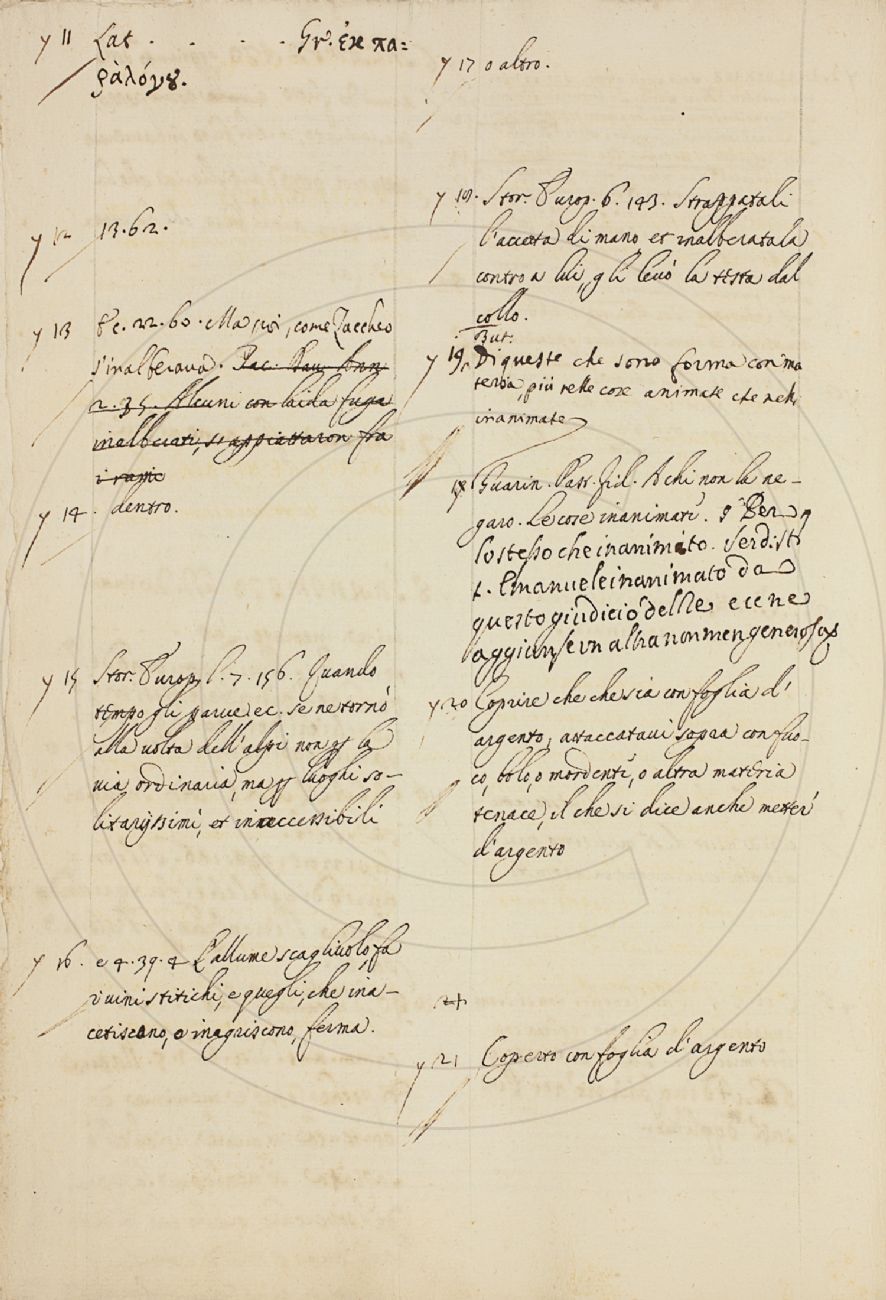 y 11 Lat . . . . Gr. ἐκ πα=
ραλόγου.
y 12 13. 62.
y 13 Fc. 22. 60. Ma poi, come Zaccheo
s'inalberava. Dav. Ann.
2. 35. Alcuni con laida fuga
inalberati, si appiattaron fra
i rami
y 14 . dentro.
y 15 Stor. Europ. l. 7. 156. Quando
tempo gli parve ec. se ne tornò
alla volta dell'alpi non p la
via ordinaria, ma p luoghi so-
litarissimi, et inaccessibili
y 16. e 4. 39. 4 L'allume scagliuolo, fa
i vini stitichi, e quegli, che ina-
cetiscono, o inagriscono, ferma.
y 17 o altro.
y 18. Stor. Europ. 6. 143. Strappatali
l'accetta di mano, et inalberatala
contro a lui, gli levò la testa dal
collo.
But:
y 19. Di queste che sono forma con ma
teria, più nelle cose animate che nelle
inanimate
Guarin. Past. fid. A chi non la ne-
garo. Le cose inanimate.
lo stesso che inanimito. Serdi. st
Emanuele inanimato da
questo giudicio delle ecc ne
aggiunse un altra non men generosa
y 20 Coprire che che sia con foglia d'
argento, attaccatavi sopra con fuo-
co, bolo, o mordente, o altra materia
tenace, il che si dice anche metter
d'argento
y 21 Coperto con foglia d'argento